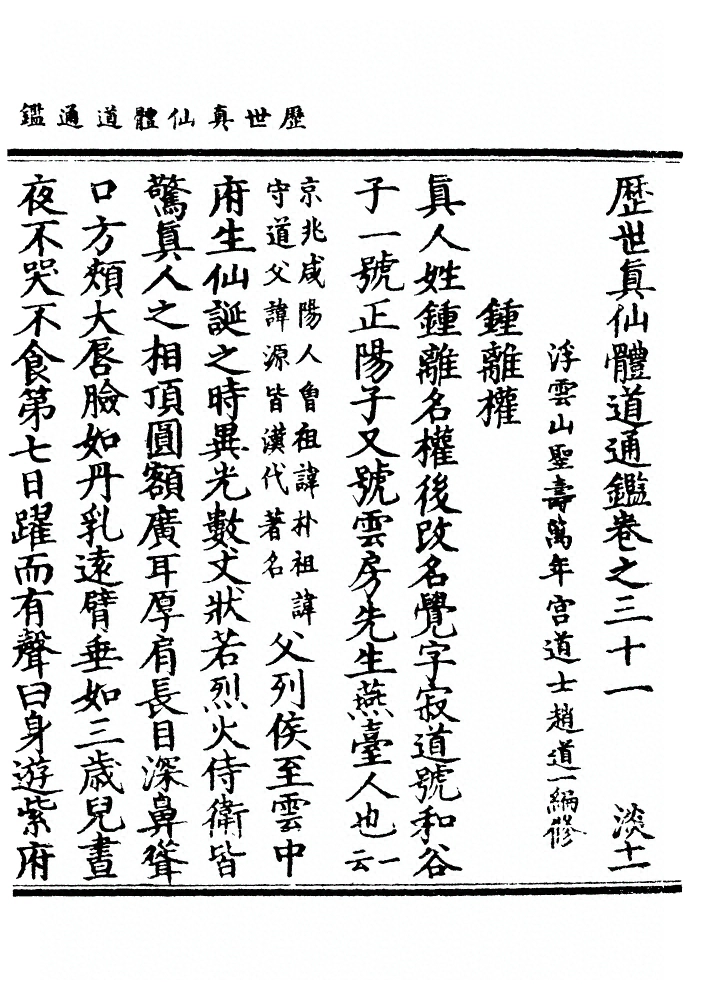 歷世真仙體道通鑑
歷世眞仙體道通鑑卷之三十一　淡十一
浮雲山聖壽萬年宮道士趙道一編修
鍾離權
眞人姓鍾離名權後改名覺字寂道號和谷
子一號正陽子又號雲房先生燕臺人也一云
京兆咸陽人曾祖諱朴祖諱
守道父諱源皆漢代著名
父列侯至雲中
府生仙誕之時異光數丈狀若烈火侍衛皆
驚眞人之相頂圓額廣耳厚肩長目深鼻聳
口方頰大唇臉如丹乳遠臂垂如三歲兒晝
夜不哭不食第七日躍而有聲曰身遊紫府